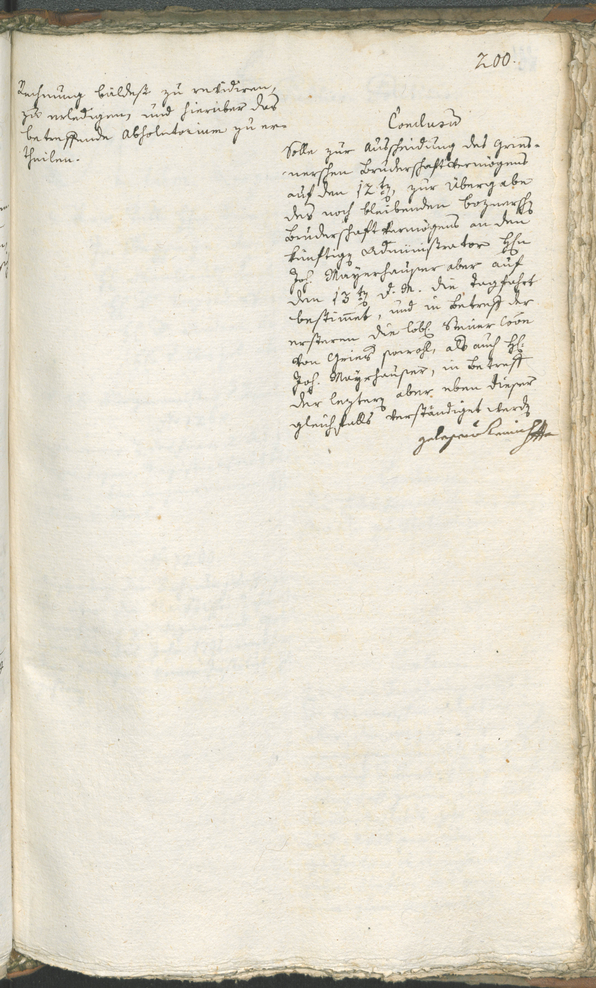 200.
Rechnung bäldest zu revidiren,
zu erledigen, und hierüber das
betreffende Absolutorium zu er-
theilen.
Conclusum
Solle zur Ausscheidung des Gries-
nerschen Bruderschaftvermögens
auf den 12ten, zur Übergabe
des noch bleibenden boznersch
Bruderschaftvermögens an den
künftigen Administrator Hhn
Joh. Mayrhauser aber auf
den 13ten d. M. die Tagfahrt
bestimmet, und in Betreff der
ersteren die löbl. Steuer
von Gries sowohl, als auch Hh.
Joh. Mayrhauser, in Betreff
der leztern aber eben dieser
gleichfalls verständiget werden